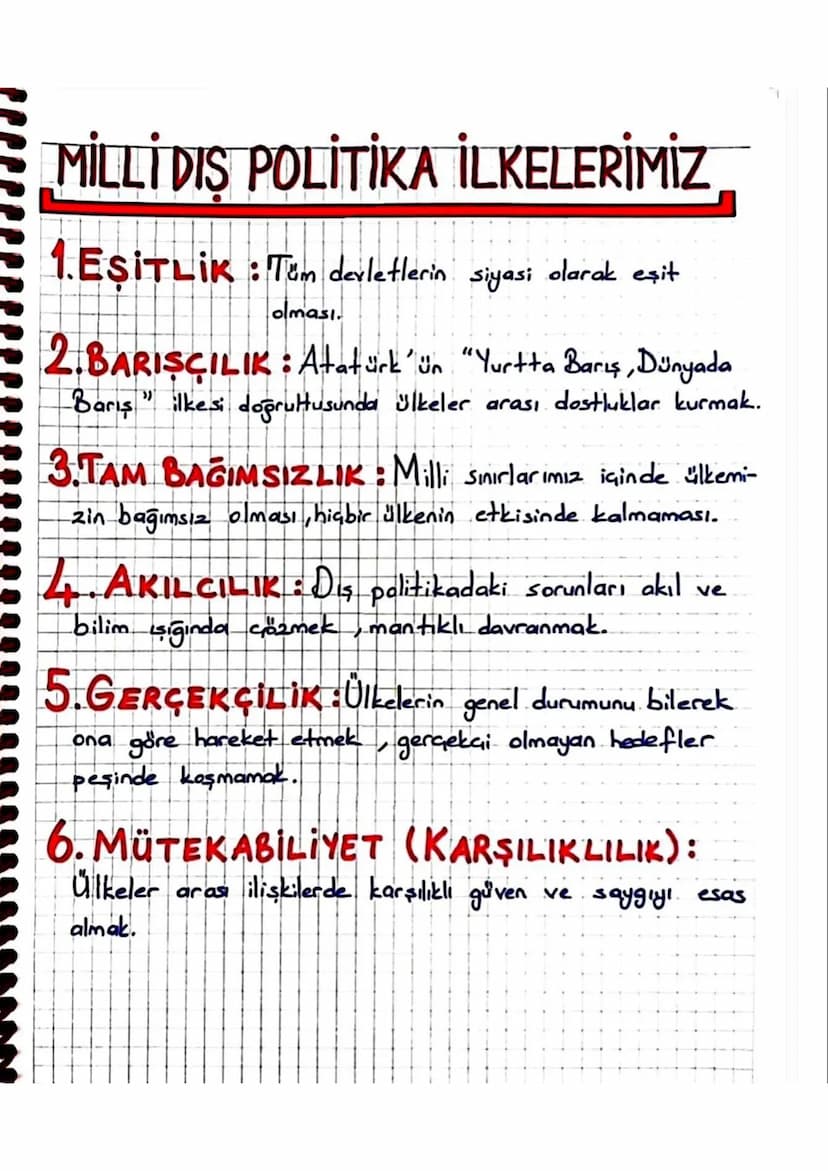 MİLLİ DIŞ POLİTİKA İLKELERİMİZ
1.EŞİTLİK : Tüm devletlerin siyasi olarak eşit
olması.
2.BARIŞÇILIK : Atatürk'ün "Yurtta Barış, Dünyada
Barış" ilkesi doğrultusunda ülkeler arası dostluklar kurmak.
3.TAM BAĞIMSIZLIK : Milli sınırlarımız içinde ülkemi-
zin bağımsız olması, hiçbir ülkenin etkisinde kalmaması.
4.AKILCILIK : Dış politikadaki sorunları akıl ve
bilim ışığında çözmek, mantıklı davranmak.
5.GERÇEKÇİLİK : Ülkelerin genel durumunu bilerek
ona göre hareket etmek, gerçekçi olmayan hedefler
peşinde koşmamak.
6.MÜTEKABİLİYET (KARŞILIKLILIK):
Ülkeler arası ilişkilerde karşılıklı güven ve saygıyı esas
almak.